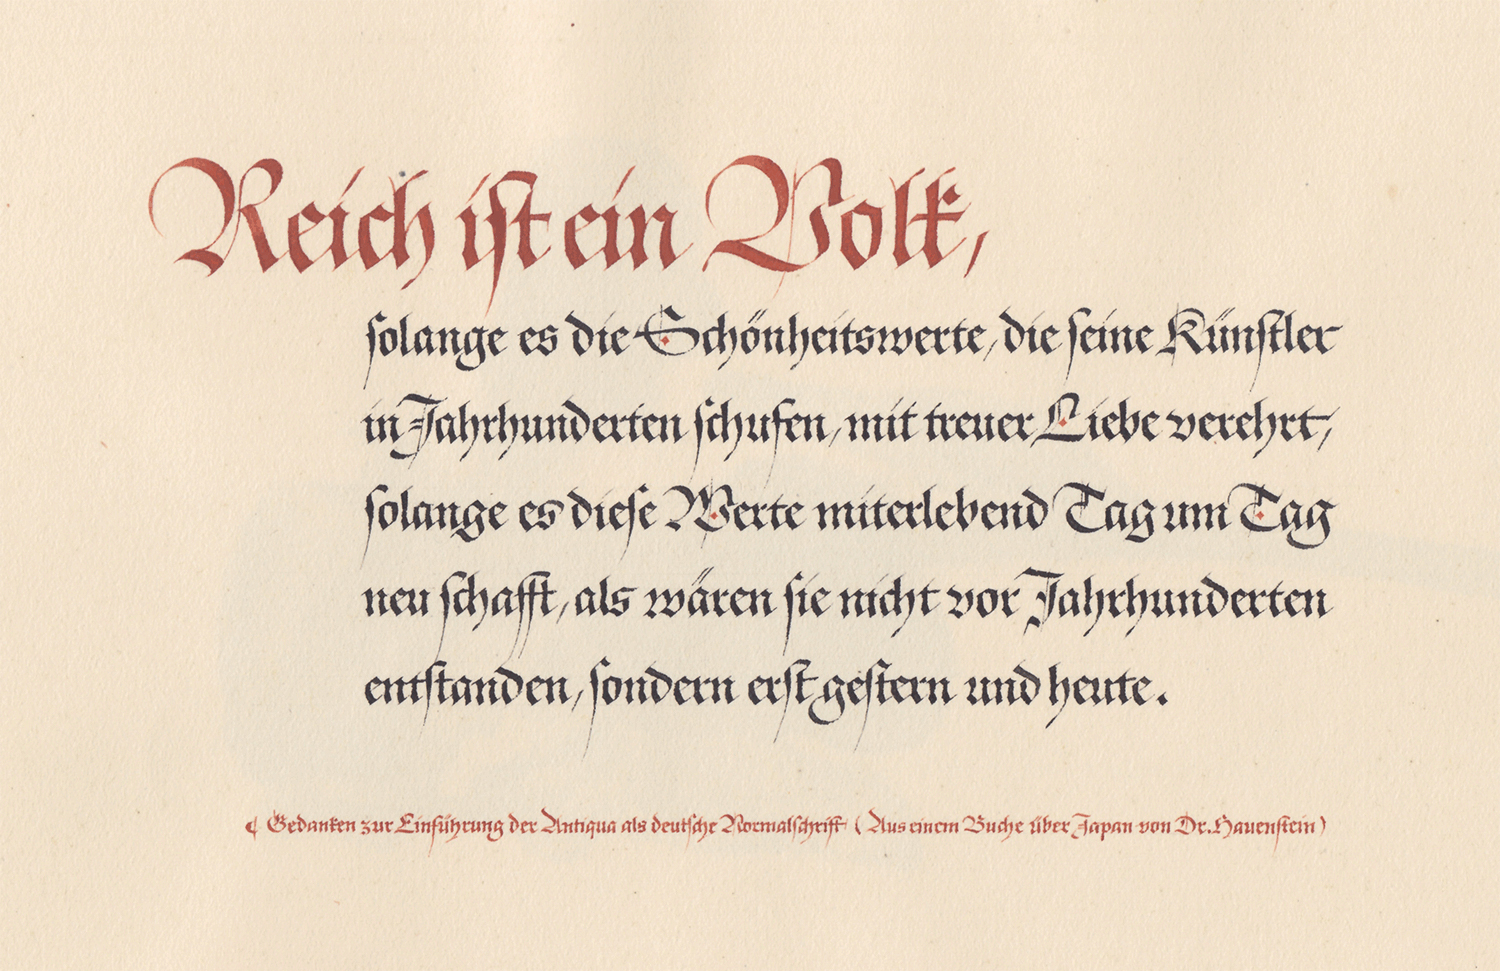 Reich ist ein Volk,
solange es die Schönheitswerte, die seine Künstler
in Jahrhunderten schufen, mit treuer Liebe verehrt,
solange es diese Werte miterlebend Tag um Tag
neu schafft, als wären sie nicht vor Jahrhunderten
entstanden, sondern erst gestern und heute.
¶ Gedanken zur Einführung der Antiqua als deutsche Normalschrift (Aus einem Buche über Japan von Dr. Hauenstein)